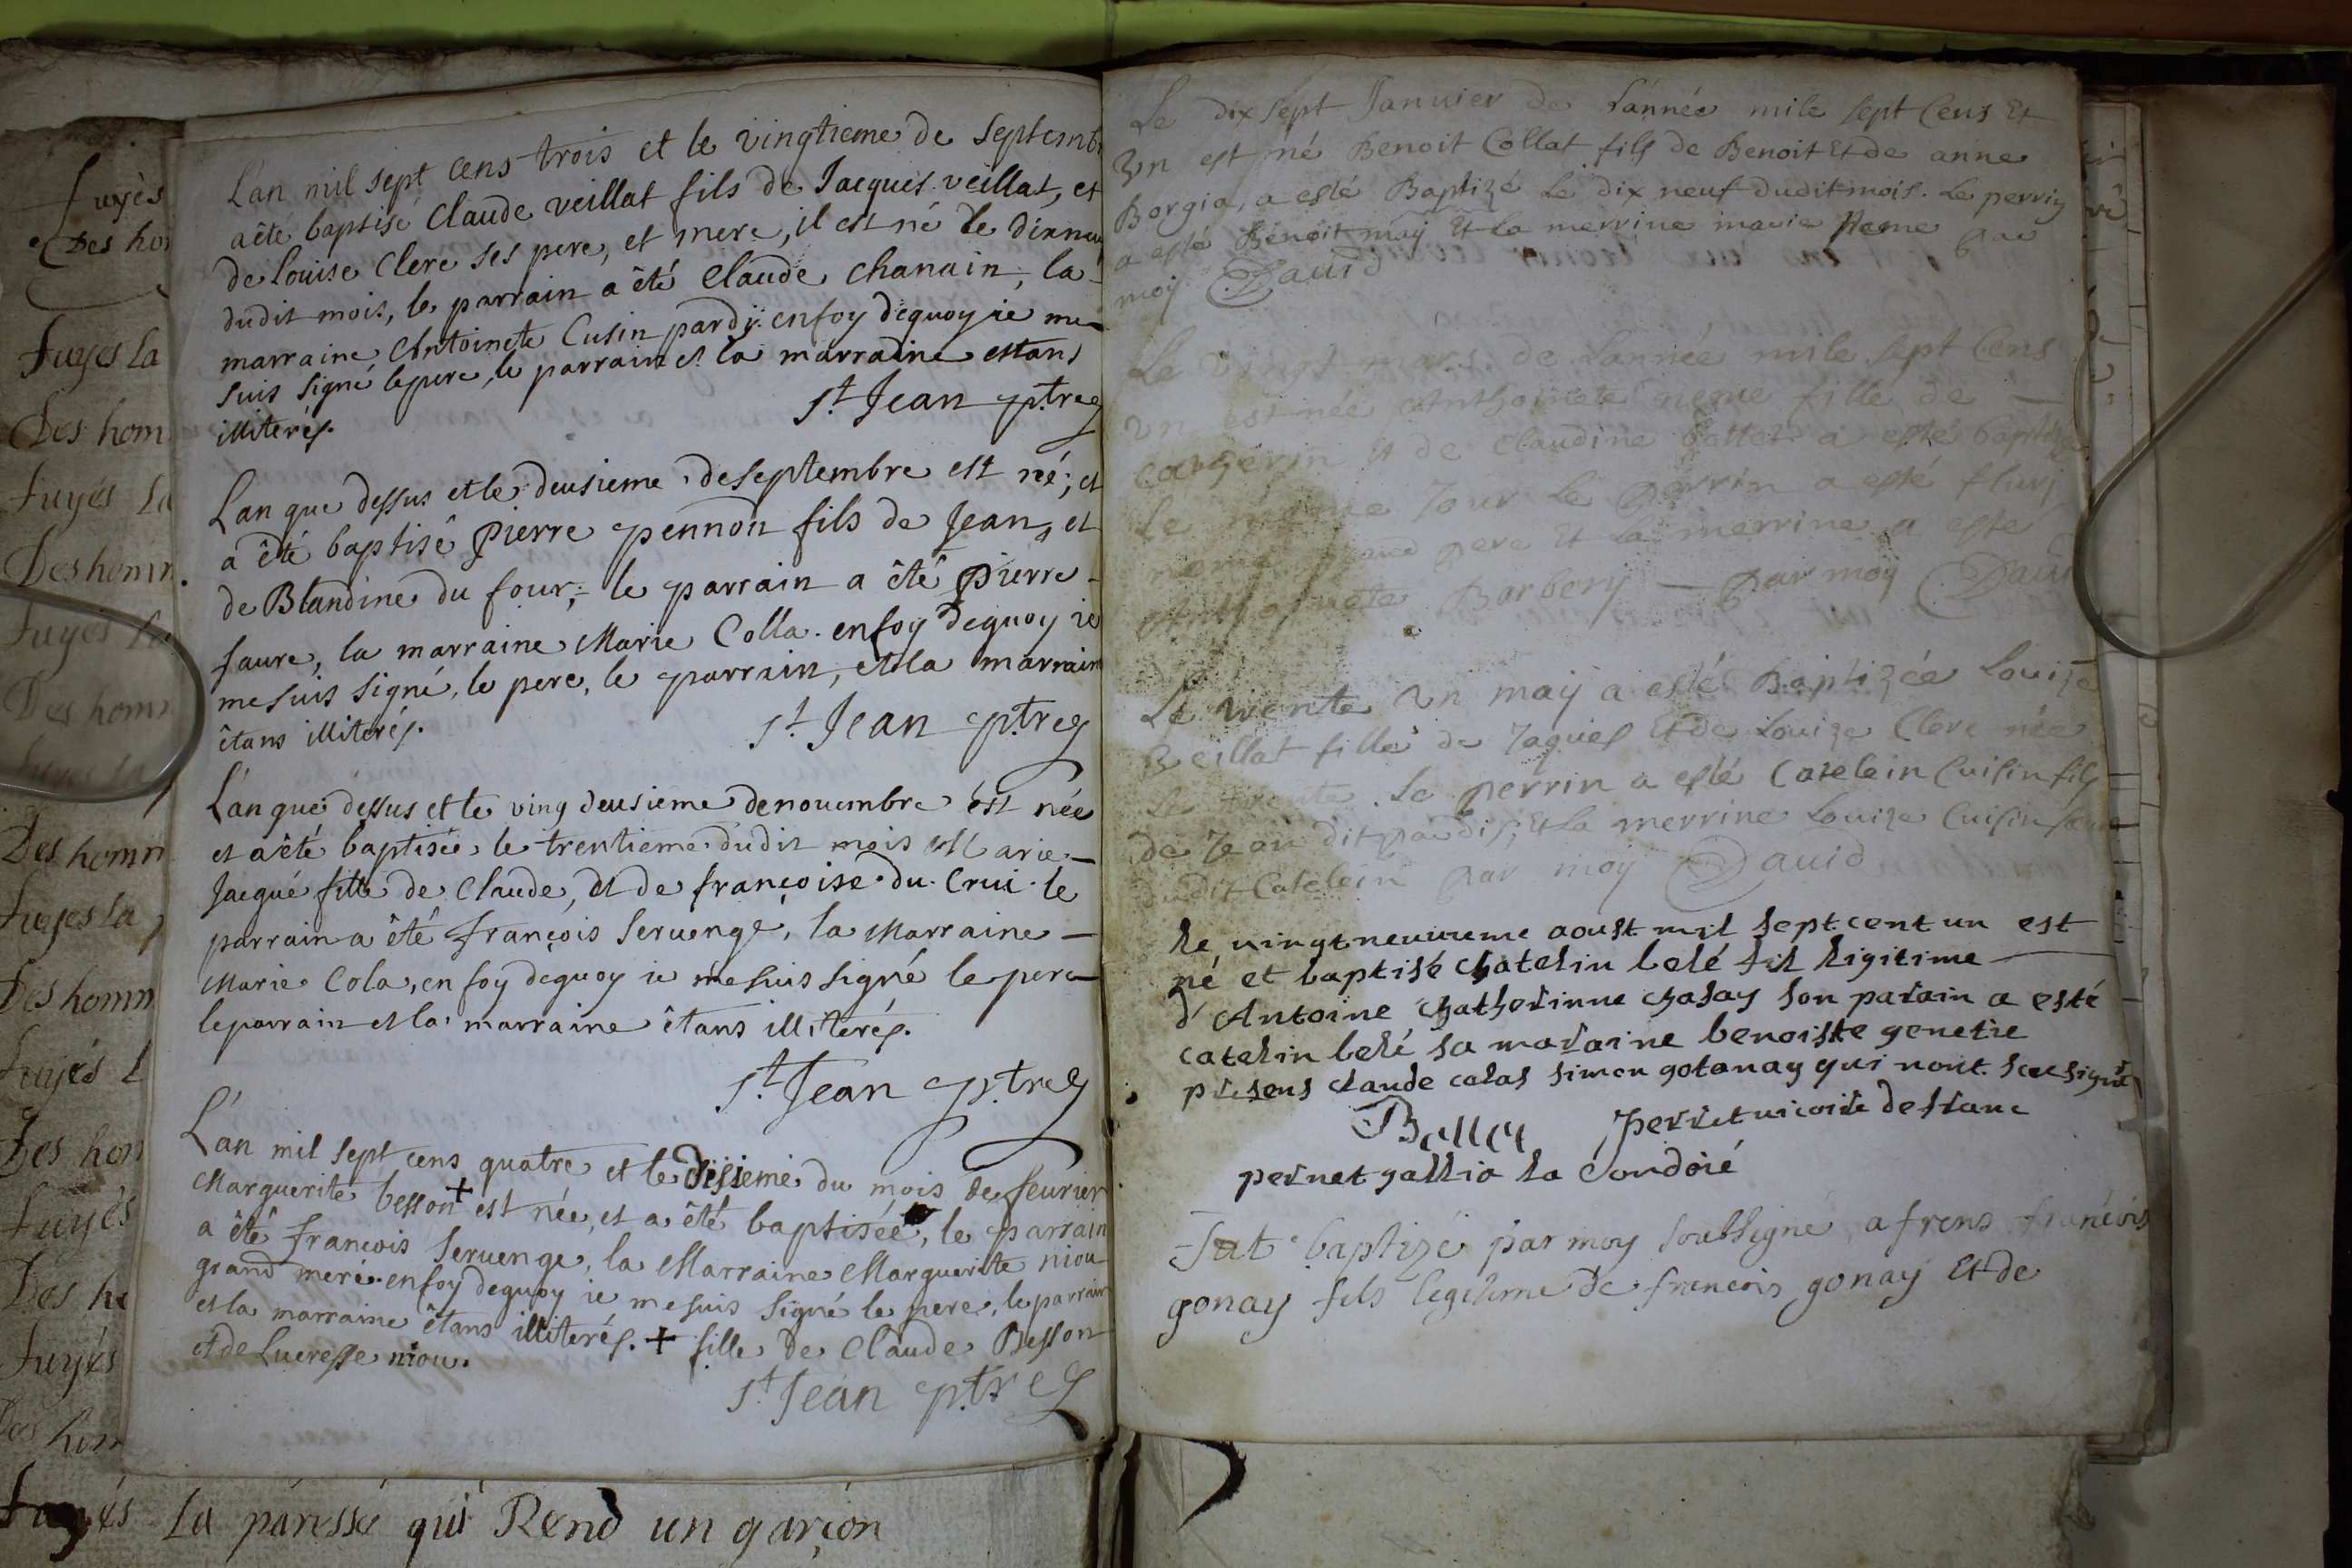 Lan mil sept cens trois et le vingtieme de septemb
a êté baptisé Claude veillat fils de Jacques veillat, et
de Louise Clerc ses pere, et mere, il est né le dixneu
dudit mois, le parrain a êté Claude chanain, la
marraine Antoinete Cusin pardy. en foy dequoy ie me
suis signé le pere, le parrain et la marraine estans
illiterés.
st Jean ptre
Lan que dessus et le deusieme de septembre est né, et
a êté baptisé pierre pennon fils de Jean, et
de Blandine du four, le parrain a êté pierre
faure, la marraine Marie Colla. en foy dequoy ie
me suis signé, le pere, le parrain, et la marrain
êtans illiterés.
st Jean ptre
Lan que dessus et le ving deusieme de nouembre est née
et a êté baptisée le trentieme dudit mois Marie
Jacqué fille de Claude, et de françoise du Crui. le
parrain a êté françois Seruenge, la Marraine
Marie Cola, en foy dequoy ie me suis signé le pere
le parrain et la marraine êtans illiterés.
st Jean ptre
L'an mil sept cens quatre et le disieme du mois de feurier
Marguerite besson + est née, et a êté baptisée, le parrain
a êté francois Seruenge, la Marraine Marguerite niou
grand mere. en foy dequoy ie me suis signé le pere, le parrain
et la marraine êtans illiterés. + fille de Claude Besson
et de Lucresse niou.
st Jean ptre
Le dix sept Januier de Lannée mile sept Cens Et
Vn est né Benoit Collat fils de Benoit Et de anne
Borgia, a esté Baptizé Le dix neuf dudit mois. Le perrin
a esté Benoit may Et la merrine marie par
moy Dauid
Le mars de Lannée mile sept Cens
Vn est née Anthoinete neme fille de —
Catherin Et de Claudine a esté baptizée
le même Jour le perrin a esté
neme grand pere Et la merrine a esté
Anthoinete Barbery — par moy Dauid
Le trente Vn may a esté Baptizée Louize
Veillat fille de Jaques Et de Louize Clerc née
Le trente. le perrin a esté Catelein Cuisin fils
de Jean dit pardis, Et la merrine Louize Cuisin
dudit Catelein par moy Dauid
le vingt neuuieme aoust mil sept cent un est
né et baptisé Chatelin belé fil ligitime
d'Antoine Chatherinne Chasay son parain a esté
catelin belé sa maraine benoiste genetie
presens claude colas simon gotanay qui nont sceu signé
perret uicoire
pernet gallio la
Fut baptizé par moy soubsigné a francois
gonay fils legitime de francois gonay Et de
fuyés
Des hom
fuyés la
Des hom
fuyés la
Des homm
fuyés la
Des hom
Des homm
fuyés la
Des homm
fuyés l
Des hom
fuyés
Des ho
fuyés
Des hom
fuyés la páressé qui Rend un garçon